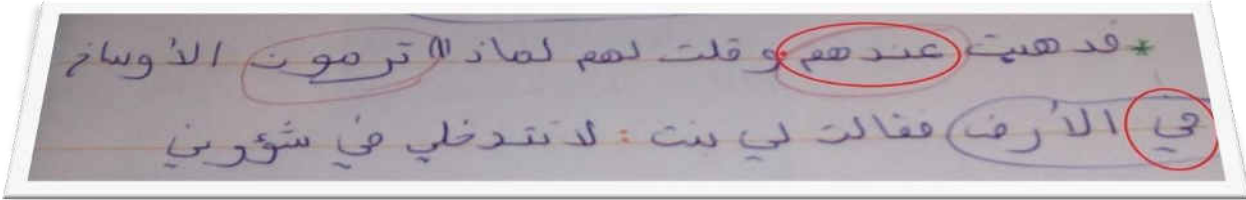 * فذهبت عندهم و قلت لهم لماذا ترمون الأوساخ
في الأرض فقالت لي بنت : لا تتدخلي في شؤوني